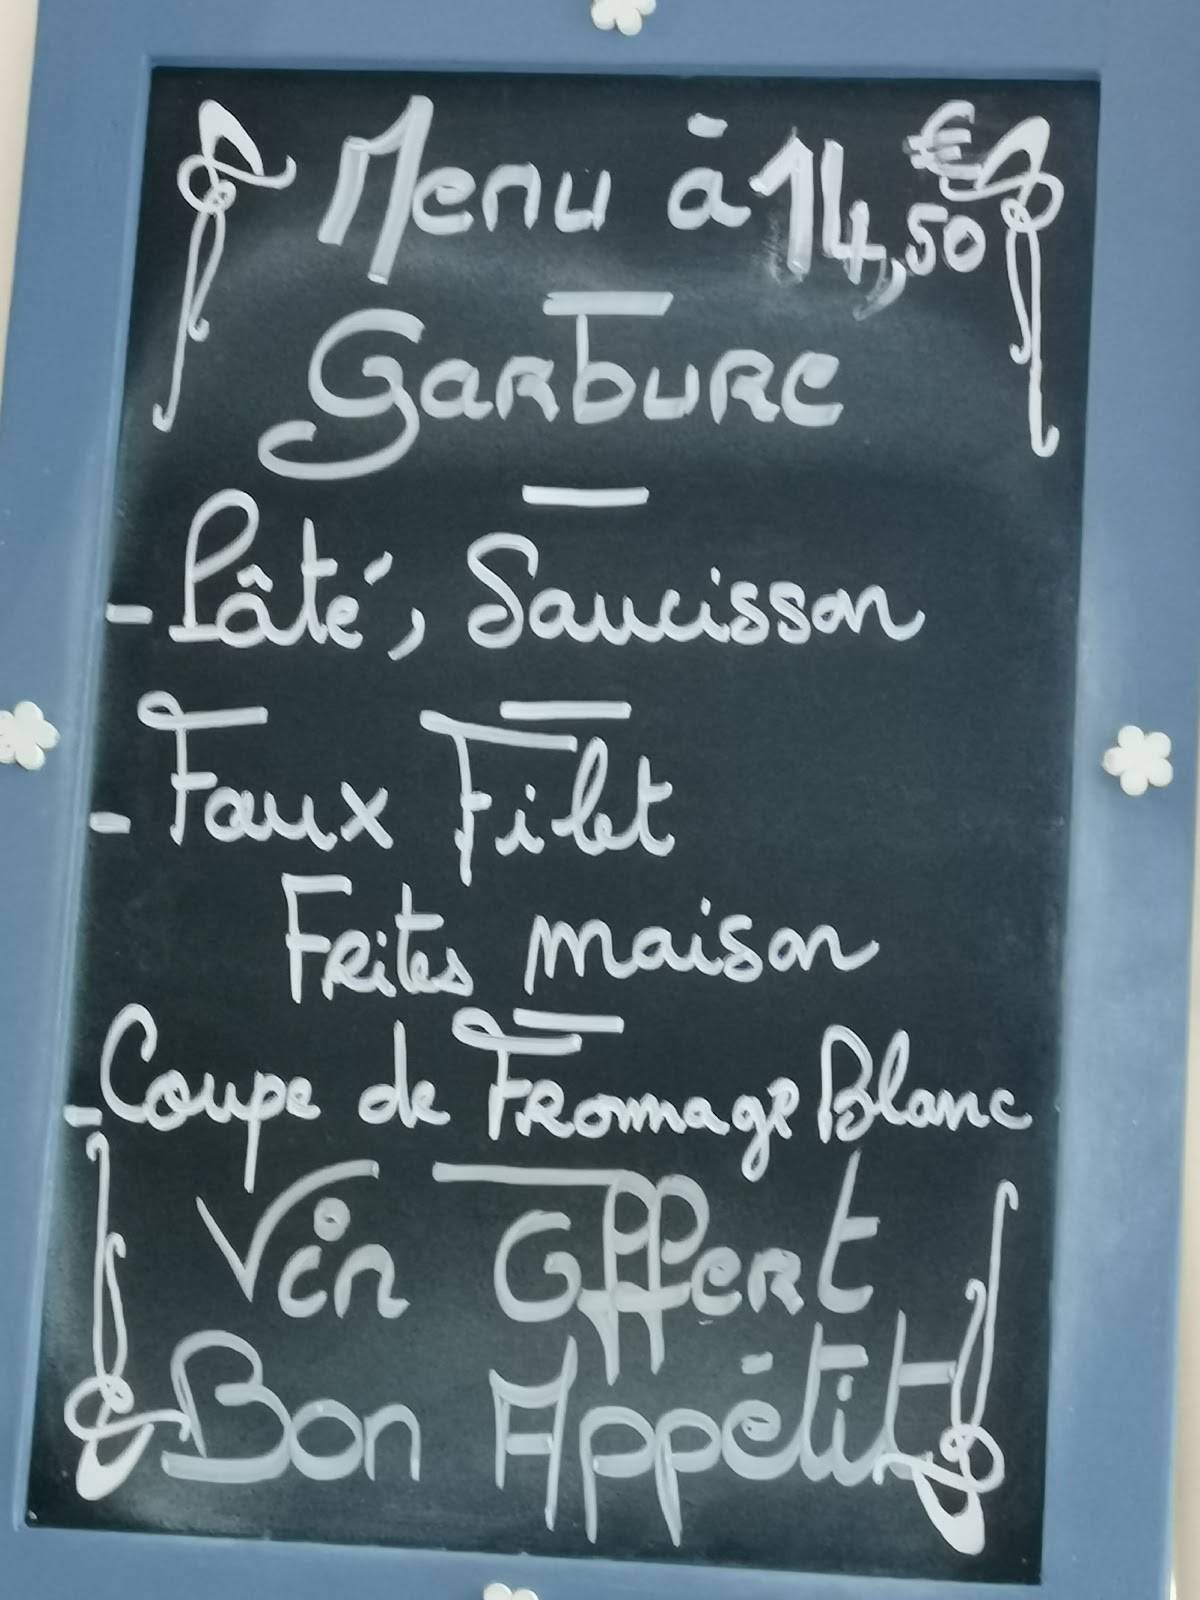 Menu à 14,50 €
Garbure
- Pâté, Saucisson
- Faux Filet
Frites maison
- Coupe de Fromage Blanc
Vin Offert
Bon Appétit